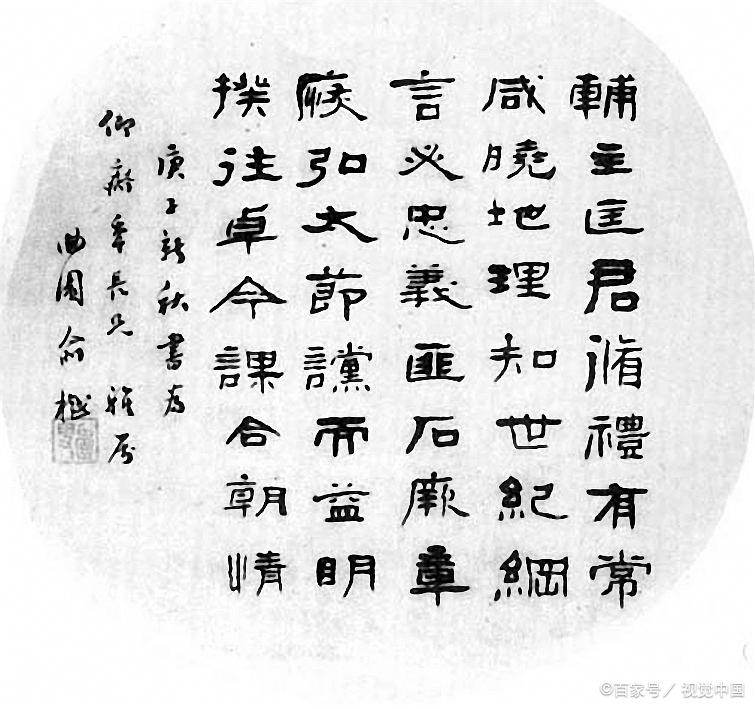 輔主匡君脩禮有常
咸曉地理知世紀綱
言必忠義匪石厥章
弘大節讜而益明
揆往卓今謀合朝情
庚子新秋書為
仰 年長兄 雅屬
曲園俞樾
©百家号／视觉中国